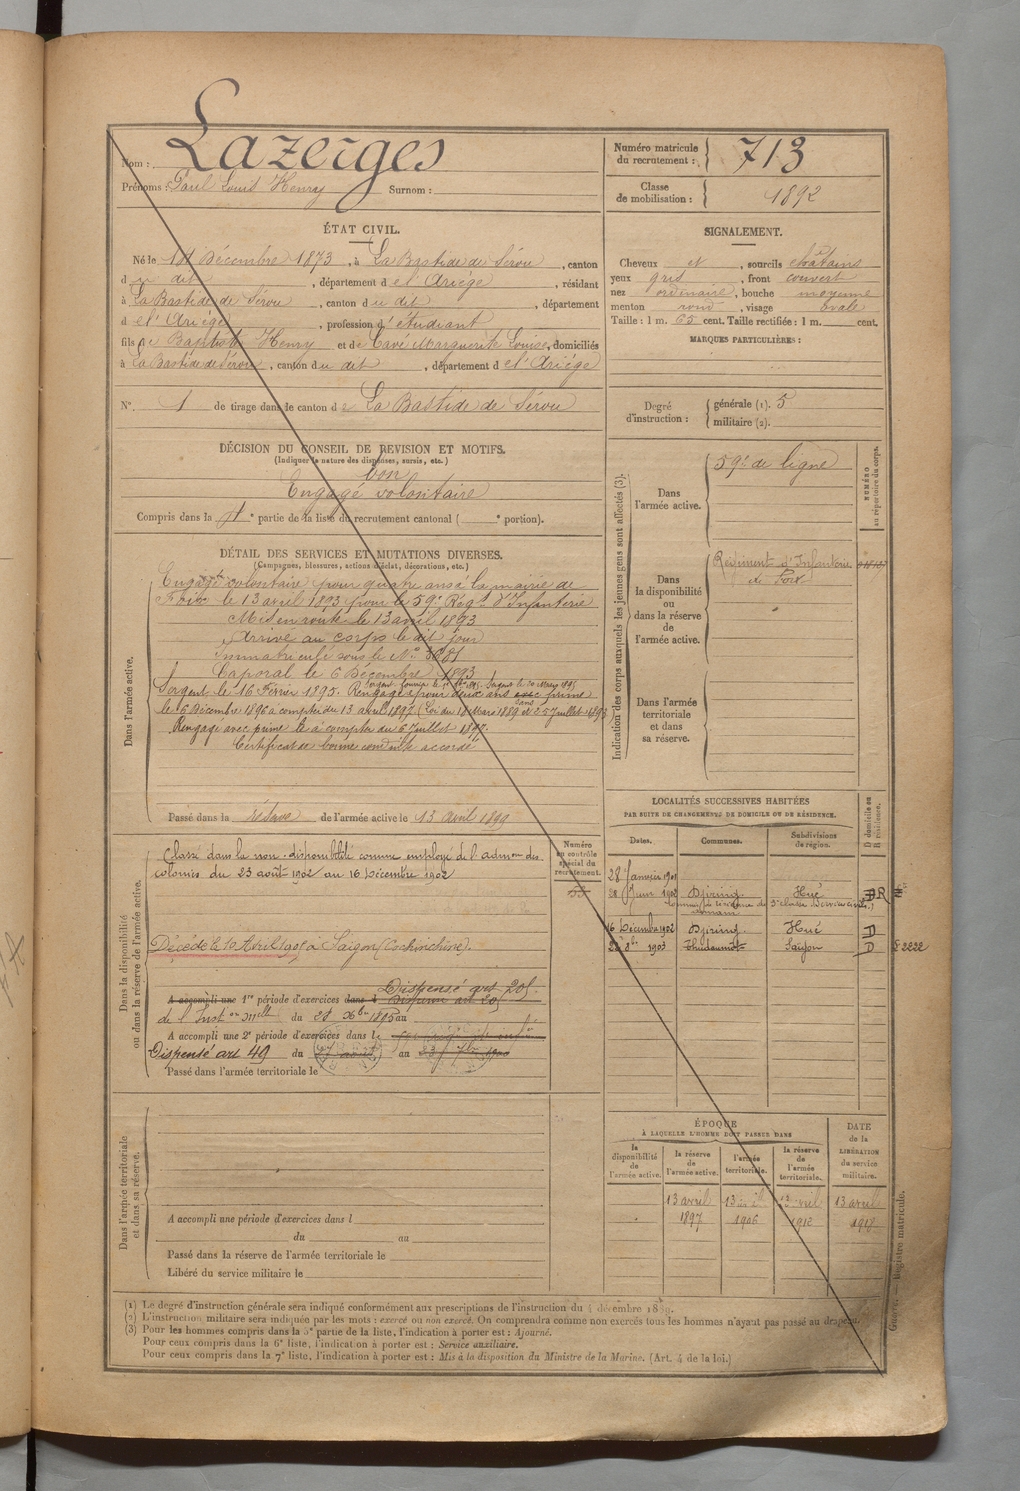 Nom : Lazerges
Prénoms : Paul Louis Henry Surnom :
Numéro matricule du recrutement : 713
Classe de mobilisation : 1892
ÉTAT CIVIL.
Né le 1er Décembre 1873, à La Bastide de Sérou, canton
du dit, département de l'Ariège, résidant
à La Bastide de Sérou, canton du dit, département
de l'Ariège, profession d'étudiant
fils de Baptiste Henry et de Cavé Marguerite Louise, domiciliés
à La Bastide de Sérou, canton du dit, département de l'Ariège
N° 1 de tirage dans le canton de La Bastide de Sérou
SIGNALEMENT.
Cheveux et, sourcils châtains
yeux gris, front couvert
nez ordinaire, bouche moyenne
menton rond, visage ovale
Taille : 1 m. 65 cent. Taille rectifiée : 1 m. cent.
MARQUES PARTICULIÈRES :
Degré d'instruction : générale (1). 5
militaire (2).
DÉCISION DU CONSEIL DE REVISION ET MOTIFS.
(Indiquer la nature des dispenses, sursis, etc.)
bon
Engagé volontaire
Compris dans la 4e partie de la liste du recrutement cantonal ( e portion).
DÉTAIL DES SERVICES ET MUTATIONS DIVERSES.
(Campagnes, blessures, actions d'éclat, décorations, etc.)
Dans l'armée active.
Engagé volontaire pour quatre ans à la mairie de
Foix le 13 avril 1893 pour le 59e Régt d'Infanterie
Mis en route le 13 avril 1893
Arrivé au corps le dit jour
Immatriculé sous le N°
Caporal le 6 Décembre 1893
Sergent le 16 Février 1895. Rengagé pour deux ans avec prime
sans
le 6 Décembre 1896 à compter du 13 avril 1897 (Loi du 18 Mars 1889 et 25 Juillet 1893)
Rengagé avec prime le à compter du 6 Juillet 1897.
Certificat de bonne conduite accordé
Passé dans la réserve de l'armée active le 13 avril 1899
Indication des corps auxquels les jeunes gens sont affectés (3).
NUMÉRO au répertoire du corps.
Dans l'armée active.
59e de ligne
Dans la disponibilité ou dans la réserve de l'armée active.
Régiment d'Infanterie
de Foix
Dans l'armée territoriale et dans sa réserve.
LOCALITÉS SUCCESSIVES HABITÉES
PAR SUITE DE CHANGEMENTS DE DOMICILE OU DE RÉSIDENCE.
Dates. Communes. Subdivisions de région. D domicile ou R résidence.
28 Janvier 1901
28 Juin 1902 Djiring Hué R
16 Décembre 1902 Djiring Hué D
1903 Thudaumot Saïgon D
Dans la disponibilité ou dans la réserve de l'armée active.
Numéro au contrôle spécial du recrutement.
53
Classé dans la non-disponibilité comme employé de l'admon des
colonies du 23 août 1902 au 16 Décembre 1902
Décédé le 10 Avril 1905 à Saïgon (Cochinchine).
Dispensé art 205
A accompli une 1re période d'exercices dans l Dispensé art 205
de l'Inston Melle du 28 Xbre 1895 au
A accompli une 2e période d'exercices dans le
Dispensé art 49 du août au 23 7bre 1900
Passé dans l'armée territoriale le
Dans l'armée territoriale et dans sa réserve.
A accompli une période d'exercices dans l
du au
Passé dans la réserve de l'armée territoriale le
Libéré du service militaire le
ÉPOQUE
À LAQUELLE L'HOMME DOIT PASSER DANS
la disponibilité de l'armée active. la réserve de l'armée active. l'armée territoriale. la réserve de l'armée territoriale. DATE de la LIBÉRATION du service militaire.
13 avril 1897 13 avril 1906 13 avril 1912 13 avril 1918
Registre matricule.
(1) Le degré d'instruction générale sera indiqué conformément aux prescriptions de l'instruction du 4 décembre 1889.
(2) L'instruction militaire sera indiquée par les mots : exercé ou non exercé. On comprendra comme non exercés tous les hommes n'ayant pas passé au drapeau.
(3) Pour les hommes compris dans la 5e partie de la liste, l'indication à porter est : Ajourné.
Pour ceux compris dans la 6e liste, l'indication à porter est : Service auxiliaire.
Pour ceux compris dans la 7e liste, l'indication à porter est : Mis à la disposition du Ministre de la Marine. (Art. 4 de la loi.)